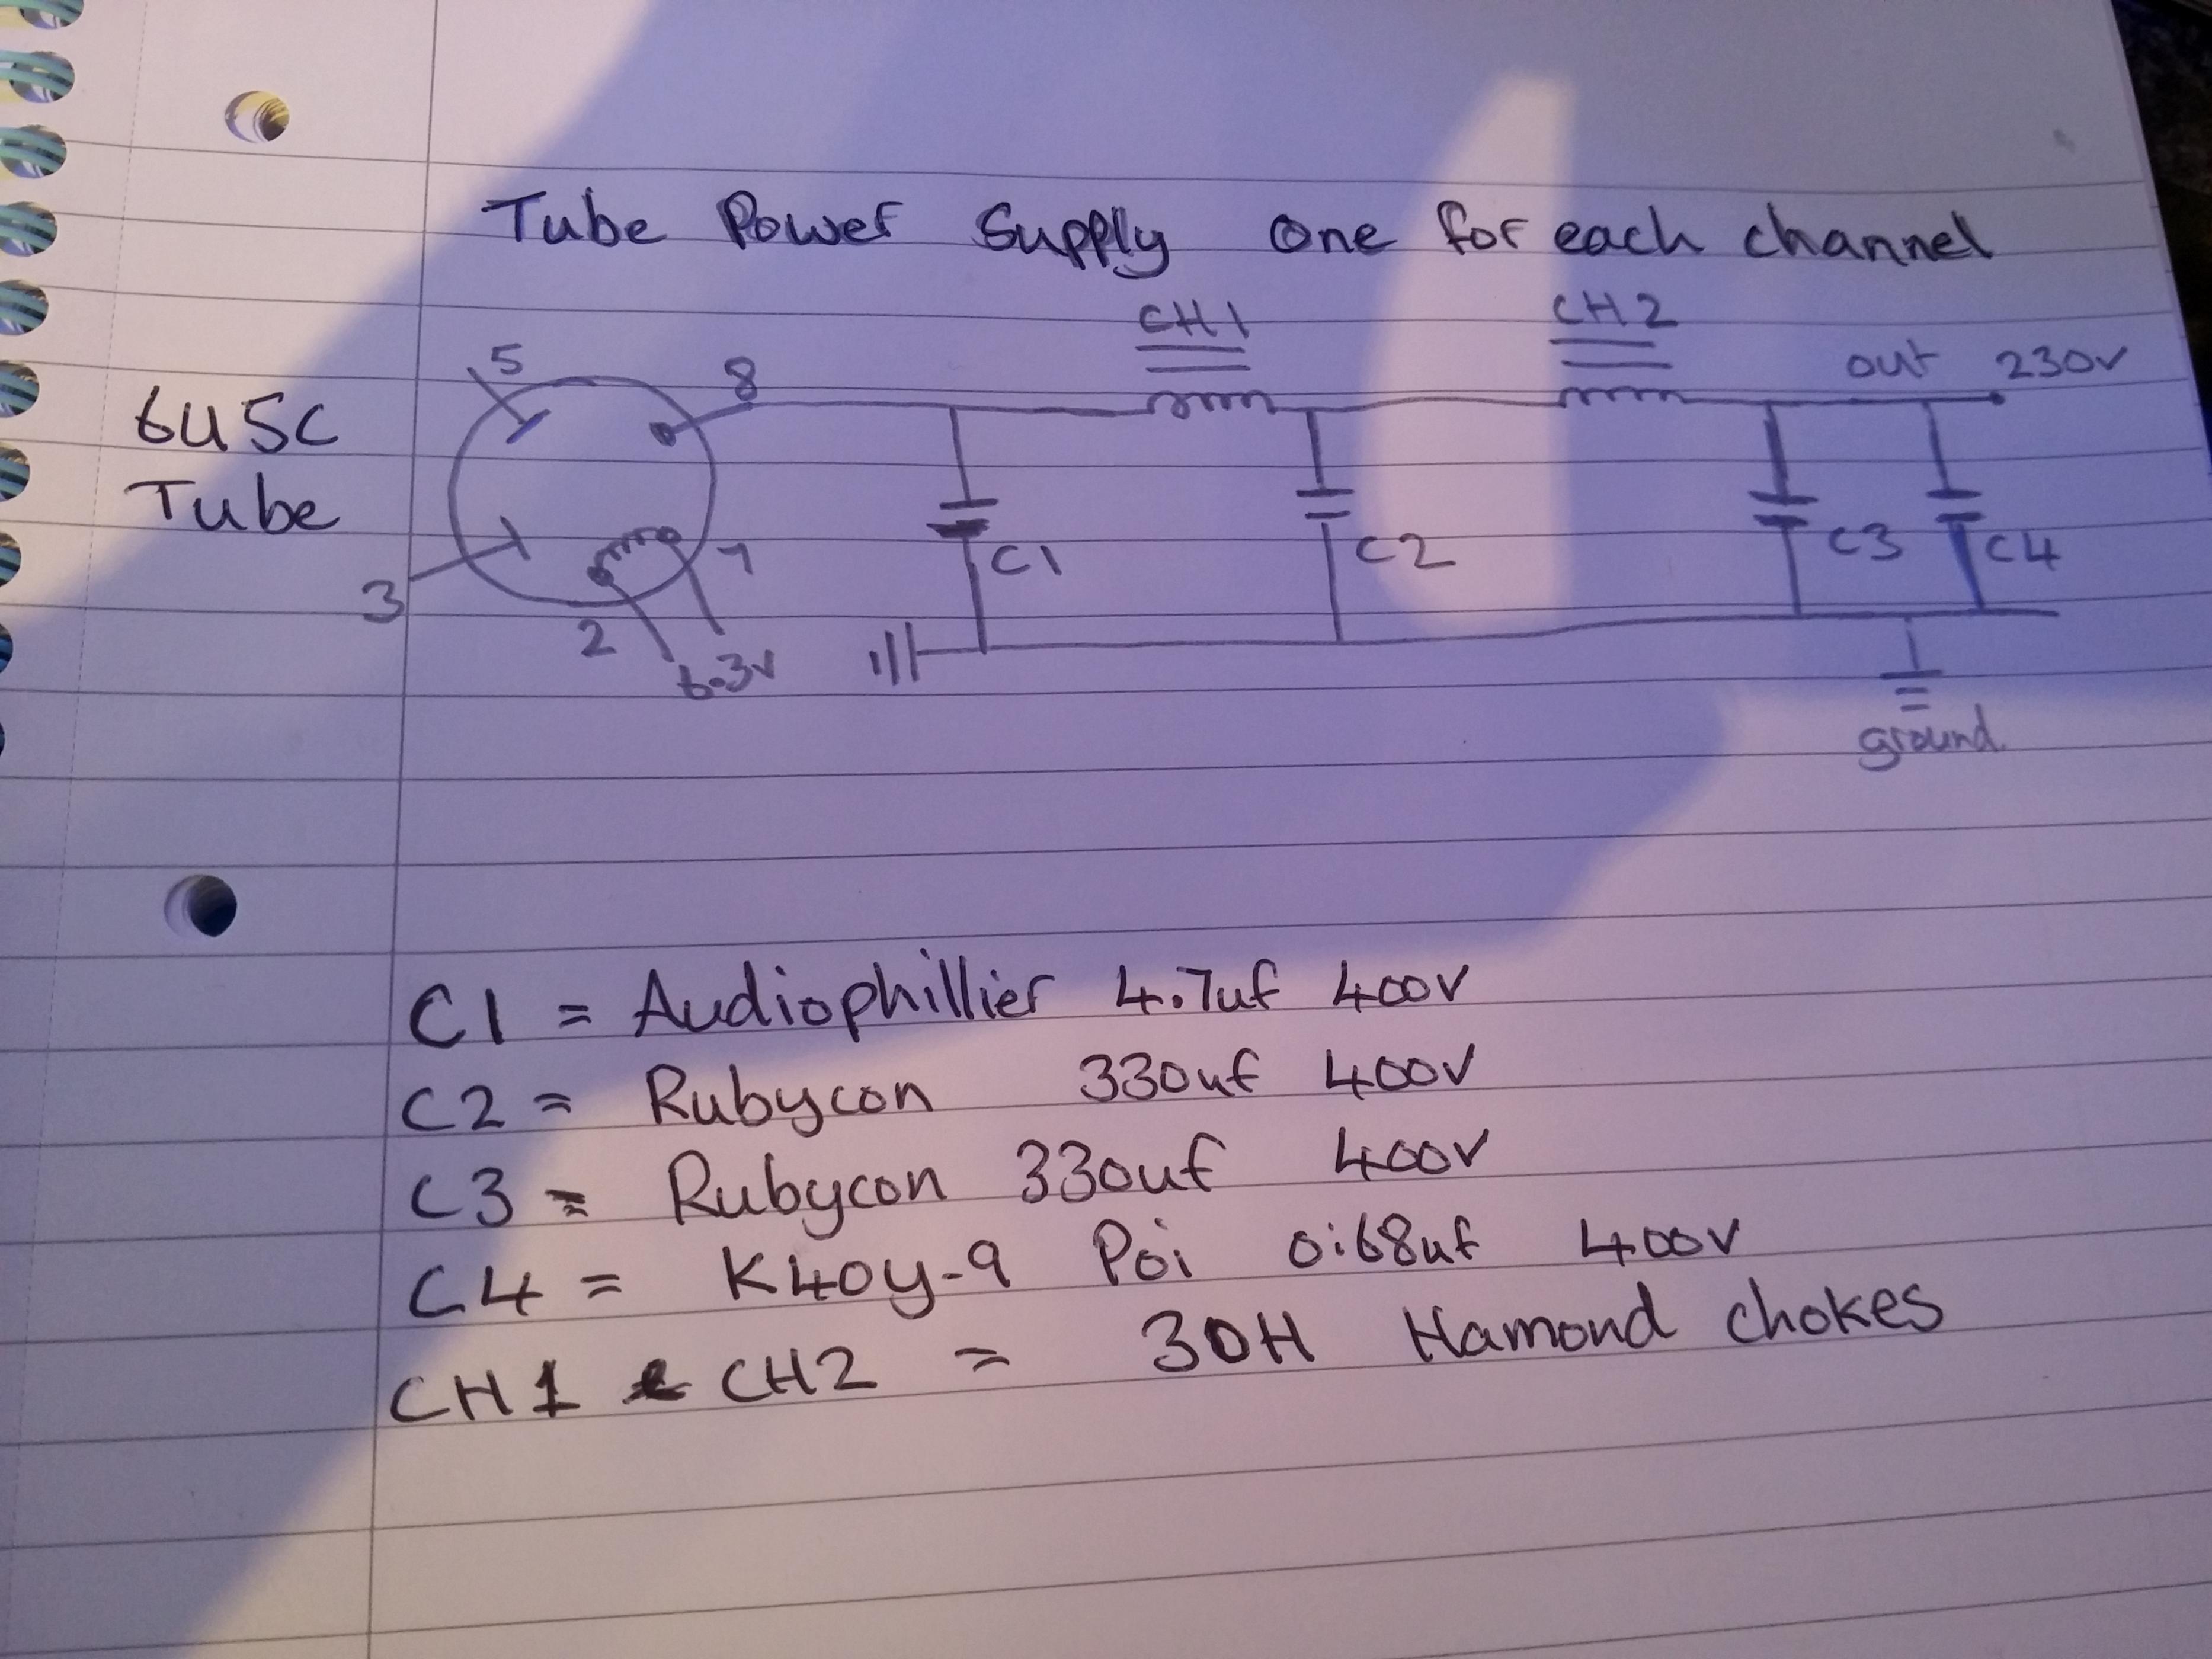 Tube Power Supply one for each channel
CH1 CH2
5 8 out 230v
6U5C
Tube
C1 C2 C3 C4
3 2 7
6.3v
ground
C1 = Audiophillier 4.7uf 400v
C2 = Rubycon 330uf 400v
C3 = Rubycon 330uf 400v
C4 = K40y-9 Poi 0.68uf 400v
CH1 & CH2 = 30H Hamond chokes